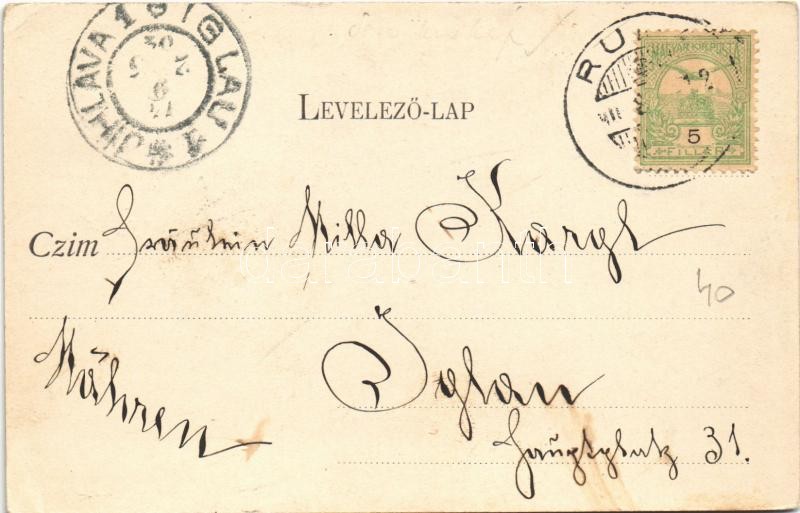 JIHLAVA 1 * IGLAU 1 *
RU
MAGYAR KIR. POSTA
5
FILLÉR
LEVELEZŐ-LAP
Czim Fräulein Milla Kargl
darabanth
40
Mähren
Iglau
Hauptplatz 31.